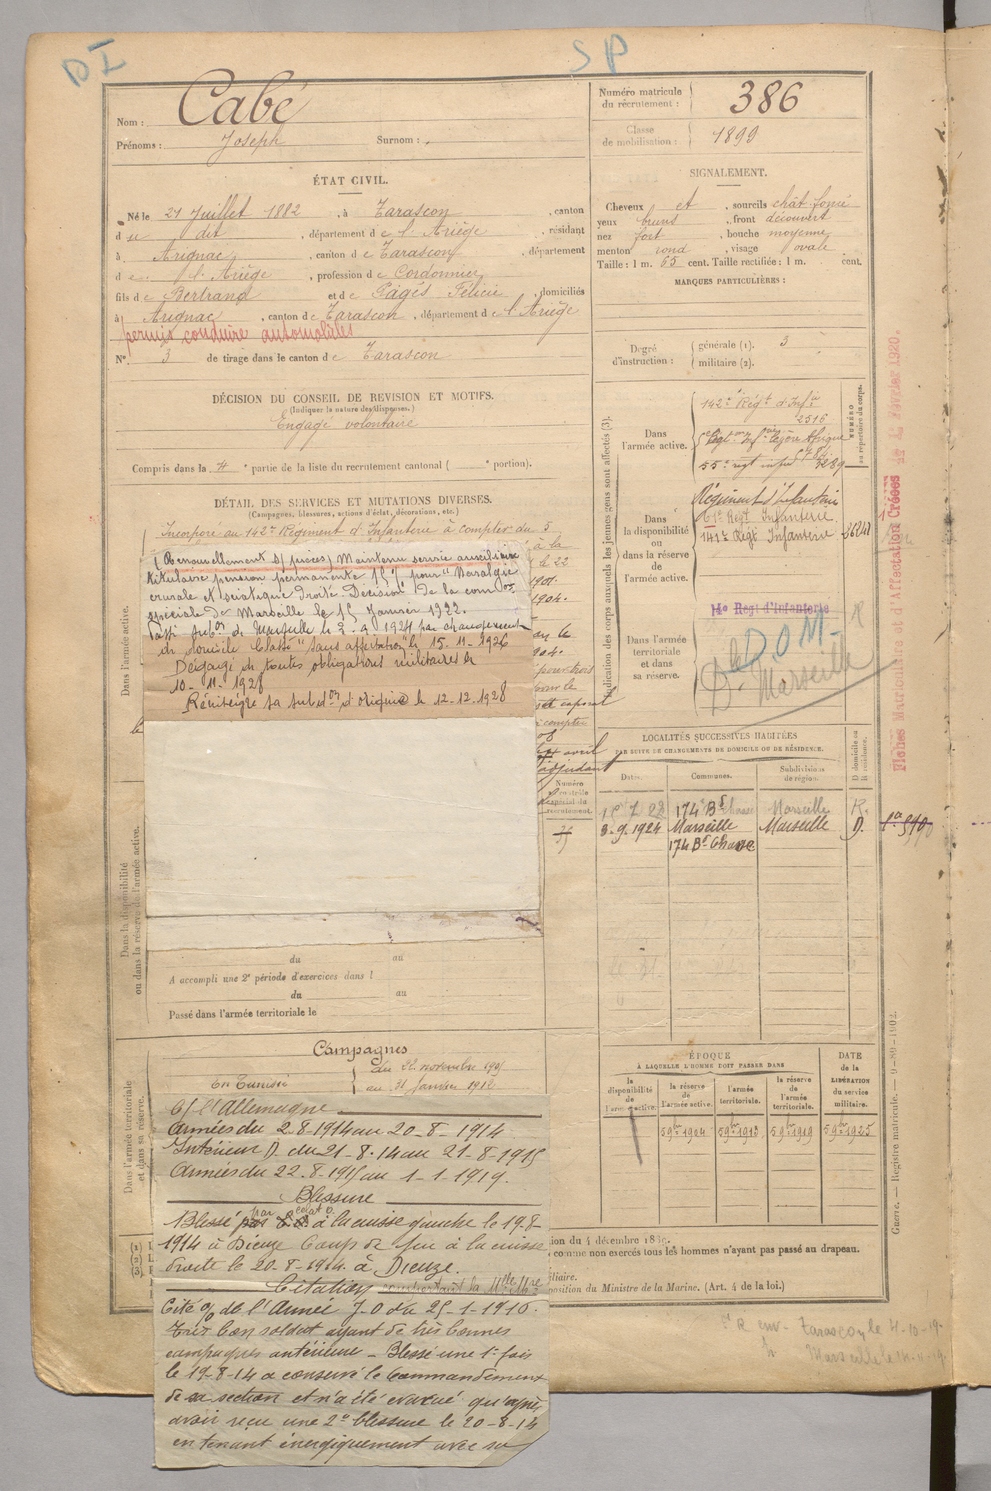 DI
SP
Nom : Cabé
Prénoms : Joseph Surnom :
Numéro matricule du recrutement : 386
Classe de mobilisation : 1899
ÉTAT CIVIL.
Né le 21 Juillet 1882, à Tarascon, canton
du dit, département de l'Ariège, résidant
à Arignac, canton de Tarascon, département
de l'Ariège, profession de Cordonnier
fils de Bertrand et de Pagés Félicie, domiciliés
à Arignac, canton de Tarascon, département de l'Ariège
permis conduire automobiles
N° 3 de tirage dans le canton de Tarascon
SIGNALEMENT.
Cheveux et, sourcils chât. foncé
yeux bruns, front découvert
nez fort, bouche moyenne
menton rond, visage ovale
Taille : 1 m. 65 cent. Taille rectifiée : 1 m. cent.
MARQUES PARTICULIÈRES :
Degré d'instruction : générale (1). 3
militaire (2).
DÉCISION DU CONSEIL DE REVISION ET MOTIFS.
(Indiquer la nature des dispenses.)
Engagé volontaire
Compris dans la 4e partie de la liste du recrutement cantonal ( e portion).
DÉTAIL DES SERVICES ET MUTATIONS DIVERSES.
(Campagnes, blessures, actions d'éclat, décorations, etc.)
Incorporé au 142e Régiment d'Infanterie à compter du 3
(Renouvellement s/ pièces) Maintenu service auxiliaire
titulaire pension permanente 15% pour "Névralgie
crurale et sciatique droite" Décision de la comon
spéciale de Marseille le 15 Janvier 1922.
Passé subon de Marseille le 3.9.1924 par changement
de domicile Classé "sans affectation" le 15.11.1926
Dégagé de toutes obligations militaires le
10-11-1928
Réintègre sa subdon d'origine le 12-12-1928
à la
le 22
1904.
adjudant
Dans l'armée active.
Dans la disponibilité ou dans la réserve de l'armée active.
Dans l'armée territoriale et dans sa réserve.
Indication des corps auxquels les jeunes gens sont affectés (3).
NUMÉRO au répertoire du corps.
Dans l'armée active.
142e Régt d'Infie
2516
55e regt infie
Dans la disponibilité ou dans la réserve de l'armée active.
Régiment d'Infanterie
61e Régt Infanterie
141e Régt Infanterie
Dans l'armée territoriale et dans sa réserve.
14e Regt d'Infanterie
DOM
Dt Marseille
Fiches Matriculaire et d'Affectation Créées le Février 1920.
LOCALITÉS SUCCESSIVES HABITÉES
PAR SUITE DE CHANGEMENTS DE DOMICILE OU DE RÉSIDENCE.
Numéro au contrôle spécial du recrutement.
Dates. Communes. Subdivisions de région. D. domicile ou R. résidence.
174 Bd Chave Marseille R.
3.9.1924 Marseille Marseille D.
174 Bd Chave
du au
A accompli une 2e période d'exercices dans l
du au
Passé dans l'armée territoriale le
Campagnes
En Tunisie du 22 novembre
au 31 janvier 1912
C/ l'Allemagne
Armées du 2.8.1914 au 20-8-1914
Intérieur D. du 21-8-14 au 21-8-1915
Armées du 22.8.1915 au 1-1-1919.
Blessure
Blessé par éclat o. à la cuisse gauche le 19-8-
1914 à Dieuze Coup de feu à la cuisse
droite le 20-8-1914 à Dieuze.
Citation
Cité % de l'Armée J.O du 25-1-1916.
Très bon soldat ayant de très bonnes
campagnes antérieures - Blessé une 1e fois
le 19-8-14 a conservé le commandement
de sa section et n'a été évacué qu'après
avoir reçu une 2e blessure le 20-8-14
en tenant énergiquement avec sa
ÉPOQUE
À LAQUELLE L'HOMME DOIT PASSER DANS
la disponibilité de l'armée active.
la réserve de l'armée active.
l'armée territoriale.
la réserve de l'armée territoriale.
DATE de la LIBÉRATION du service militaire.
5 9bre 1904 5 9bre 1919 5 9bre 1925
(1)
(2)
(3)
comme non exercés tous les hommes n'ayant pas passé au drapeau.
position du Ministre de la Marine. (Art. 4 de la loi.)
Guerre. — Registre matricule. —
Tarascon le 4-10-19
Marseille le